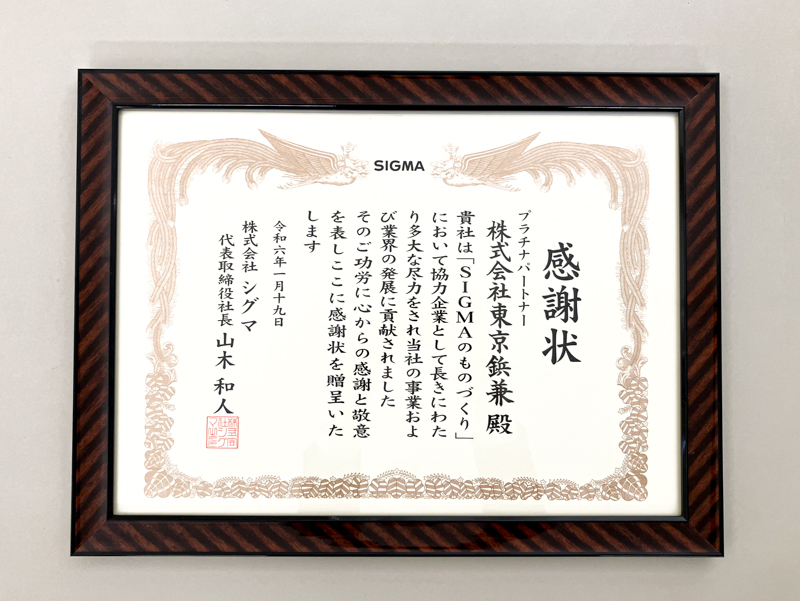 SIGMA
感謝状
プラチナパートナー
株式会社東京鋲兼 殿
貴社は「SIGMAのものづくり」
において協力企業として長きにわた
り多大な尽力をされ当社の事業およ
び業界の発展に貢献されました
そのご功労に心からの感謝と敬意
を表しここに感謝状を贈呈いた
します
令和六年一月十九日
株式会社 シグマ
代表取締役社長 山木 和人